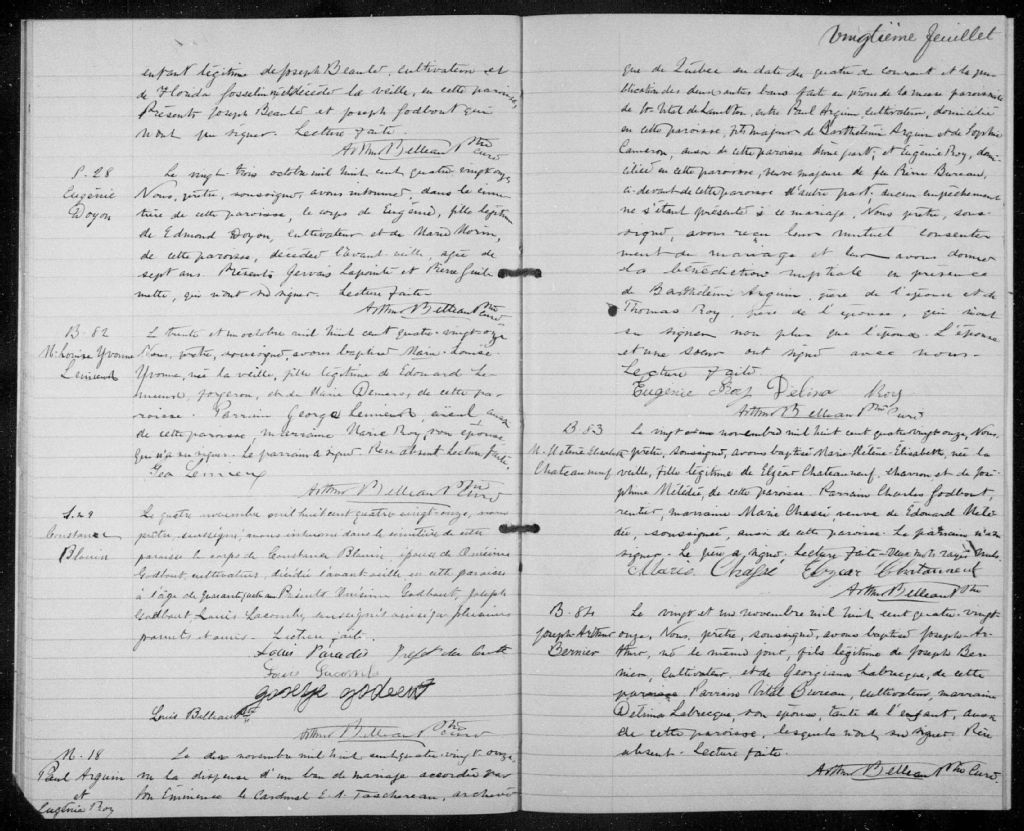 enfant légitime de Joseph Beaulé, cultivateur et
de Florida Josselin, décédé la veille, en cette paroisse,
Présents Joseph Beaulé et Joseph Godbout qui
n'ont pu signer. Lecture faite.
Arthur Belleau Ptre Curé
S. 28
Eugénie
Doyon
Le vingt-trois octobre mil huit cent quatre-vingt-onze
Nous, prêtre, soussigné, avons inhumé, dans le cime-
tière de cette paroisse, le corps de Eugénie, fille légitime
de Edmond Doyon, cultivateur et de Marie Morin,
de cette paroisse, décédée l'avant-veille, agée de
sept ans. Présents Gervais Lapointe et Pierre Guille-
mette, qui n'ont su signer. Lecture faite.
Arthur Belleau Ptre Curé
B. 82
M. Louise Yvonne
Lemieux
Le trente et un octobre mil huit cent quatre-vingt-onze
Nous, prêtre, soussigné, avons baptisé Marie-Louise-
Yvonne, née la veille, fille légitime de Edouard Le-
mieux, forgeron, et de Marie Demers, de cette pa-
roisse. Parrain George Lemieux, aieul aussi
de cette paroisse, marraine Marie Roy, son épouse
qui n'a su signer. Le parrain a signé. Père absent. Lecture faite.
Geo Lemieux
Arthur Belleau Ptre Curé
S. 29
Constance
Blouin
Le quatre novembre mil huit cent quatre-vingt-onze, nous
prêtre, soussigné, avons inhumé dans le cimetière de cette
paroisse le corps de Constance Blouin épouse de Onésime
Godbout, cultivateur, décédée l'avant-veille en cette paroisse
à l'âge de ans. Présents Onésime Godbout, Joseph
Godbout, Louis Lacombe, soussignés ainsi que plusieurs
parents et amis. Lecture faite.
Louis Paradis
Louis Lacombe
george godbout
Louis Belleau
Arthur Belleau Ptre Curé
M. 18
Paul Arguin
et
Eugénie Roy
Le dix novembre mil huit cent quatre-vingt-onze,
vu la dispense d'un ban de mariage accordée par
Son Eminence le Cardinal E. A. Taschereau, archevê-
Vingtième feuillet
que de Québec en date du quatre du courant et la pu-
blication des deux autres bans faite au prône de la messe paroissiale
de St Vital de Lambton, entre Paul Arguin, cultivateur, domicilié
en cette paroisse, fils majeur de Barthélémi Arguin et de Sophie
Cameron, aussi de cette paroisse d'une part; et Eugénie Roy, domi-
ciliée en cette paroisse, veuve majeure de feu Pierre Bureau,
ci-devant de cette paroisse d'autre part; aucun empêchement
ne s'étant présenté à ce mariage, Nous prêtre, sous-
signé, avons reçu leur mutuel consente-
ment de mariage et leur avons donné
la bénédiction nuptiale en présence
de Barthélémi Arguin, père de l'époux et de
Thomas Roy, père de l'épouse, qui n'ont
su signer non plus que l'époux. L'épouse
et une soeur ont signé avec nous.
Lecture faite.
Eugénie Roy Delina Roy
Arthur Belleau Ptre Curé
B. 83
M. Hélène Elisabeth
Chateauneuf
Le vingt novembre mil huit cent quatre-vingt-onze, Nous,
prêtre, soussigné, avons baptisé Marie-Hélène-Elisabeth, née la
veille, fille légitime de Elzéar Chateauneuf, charron, et de José-
phine Mélidie, de cette paroisse. Parrain Charles Godbout,
rentier, marraine Marie Chassé, veuve de Edouard Méli-
die, soussignée, aussi de cette paroisse. Le parrain n'a su
signer. Le père a signé. Lecture faite. Deux mots rayés nuls.
Marie Chassé Elzéar Chateauneuf
Arthur Belleau Ptre
B. 84
Joseph Arthur
Bernier
Le vingt et un novembre mil huit cent quatre-vingt-
onze, Nous, prêtre, soussigné, avons baptisé Joseph-Ar-
thur, né le même jour, fils légitime de Joseph Ber-
nier, cultivateur, et de Georgiana Labrecque, de cette
paroisse. Parrain Vital Bureau, cultivateur, marraine
Délima Labrecque, son épouse, tante de l'enfant, aussi
de cette paroisse, lesquels n'ont su signer. Père
absent. Lecture faite.
Arthur Belleau Ptre Curé.